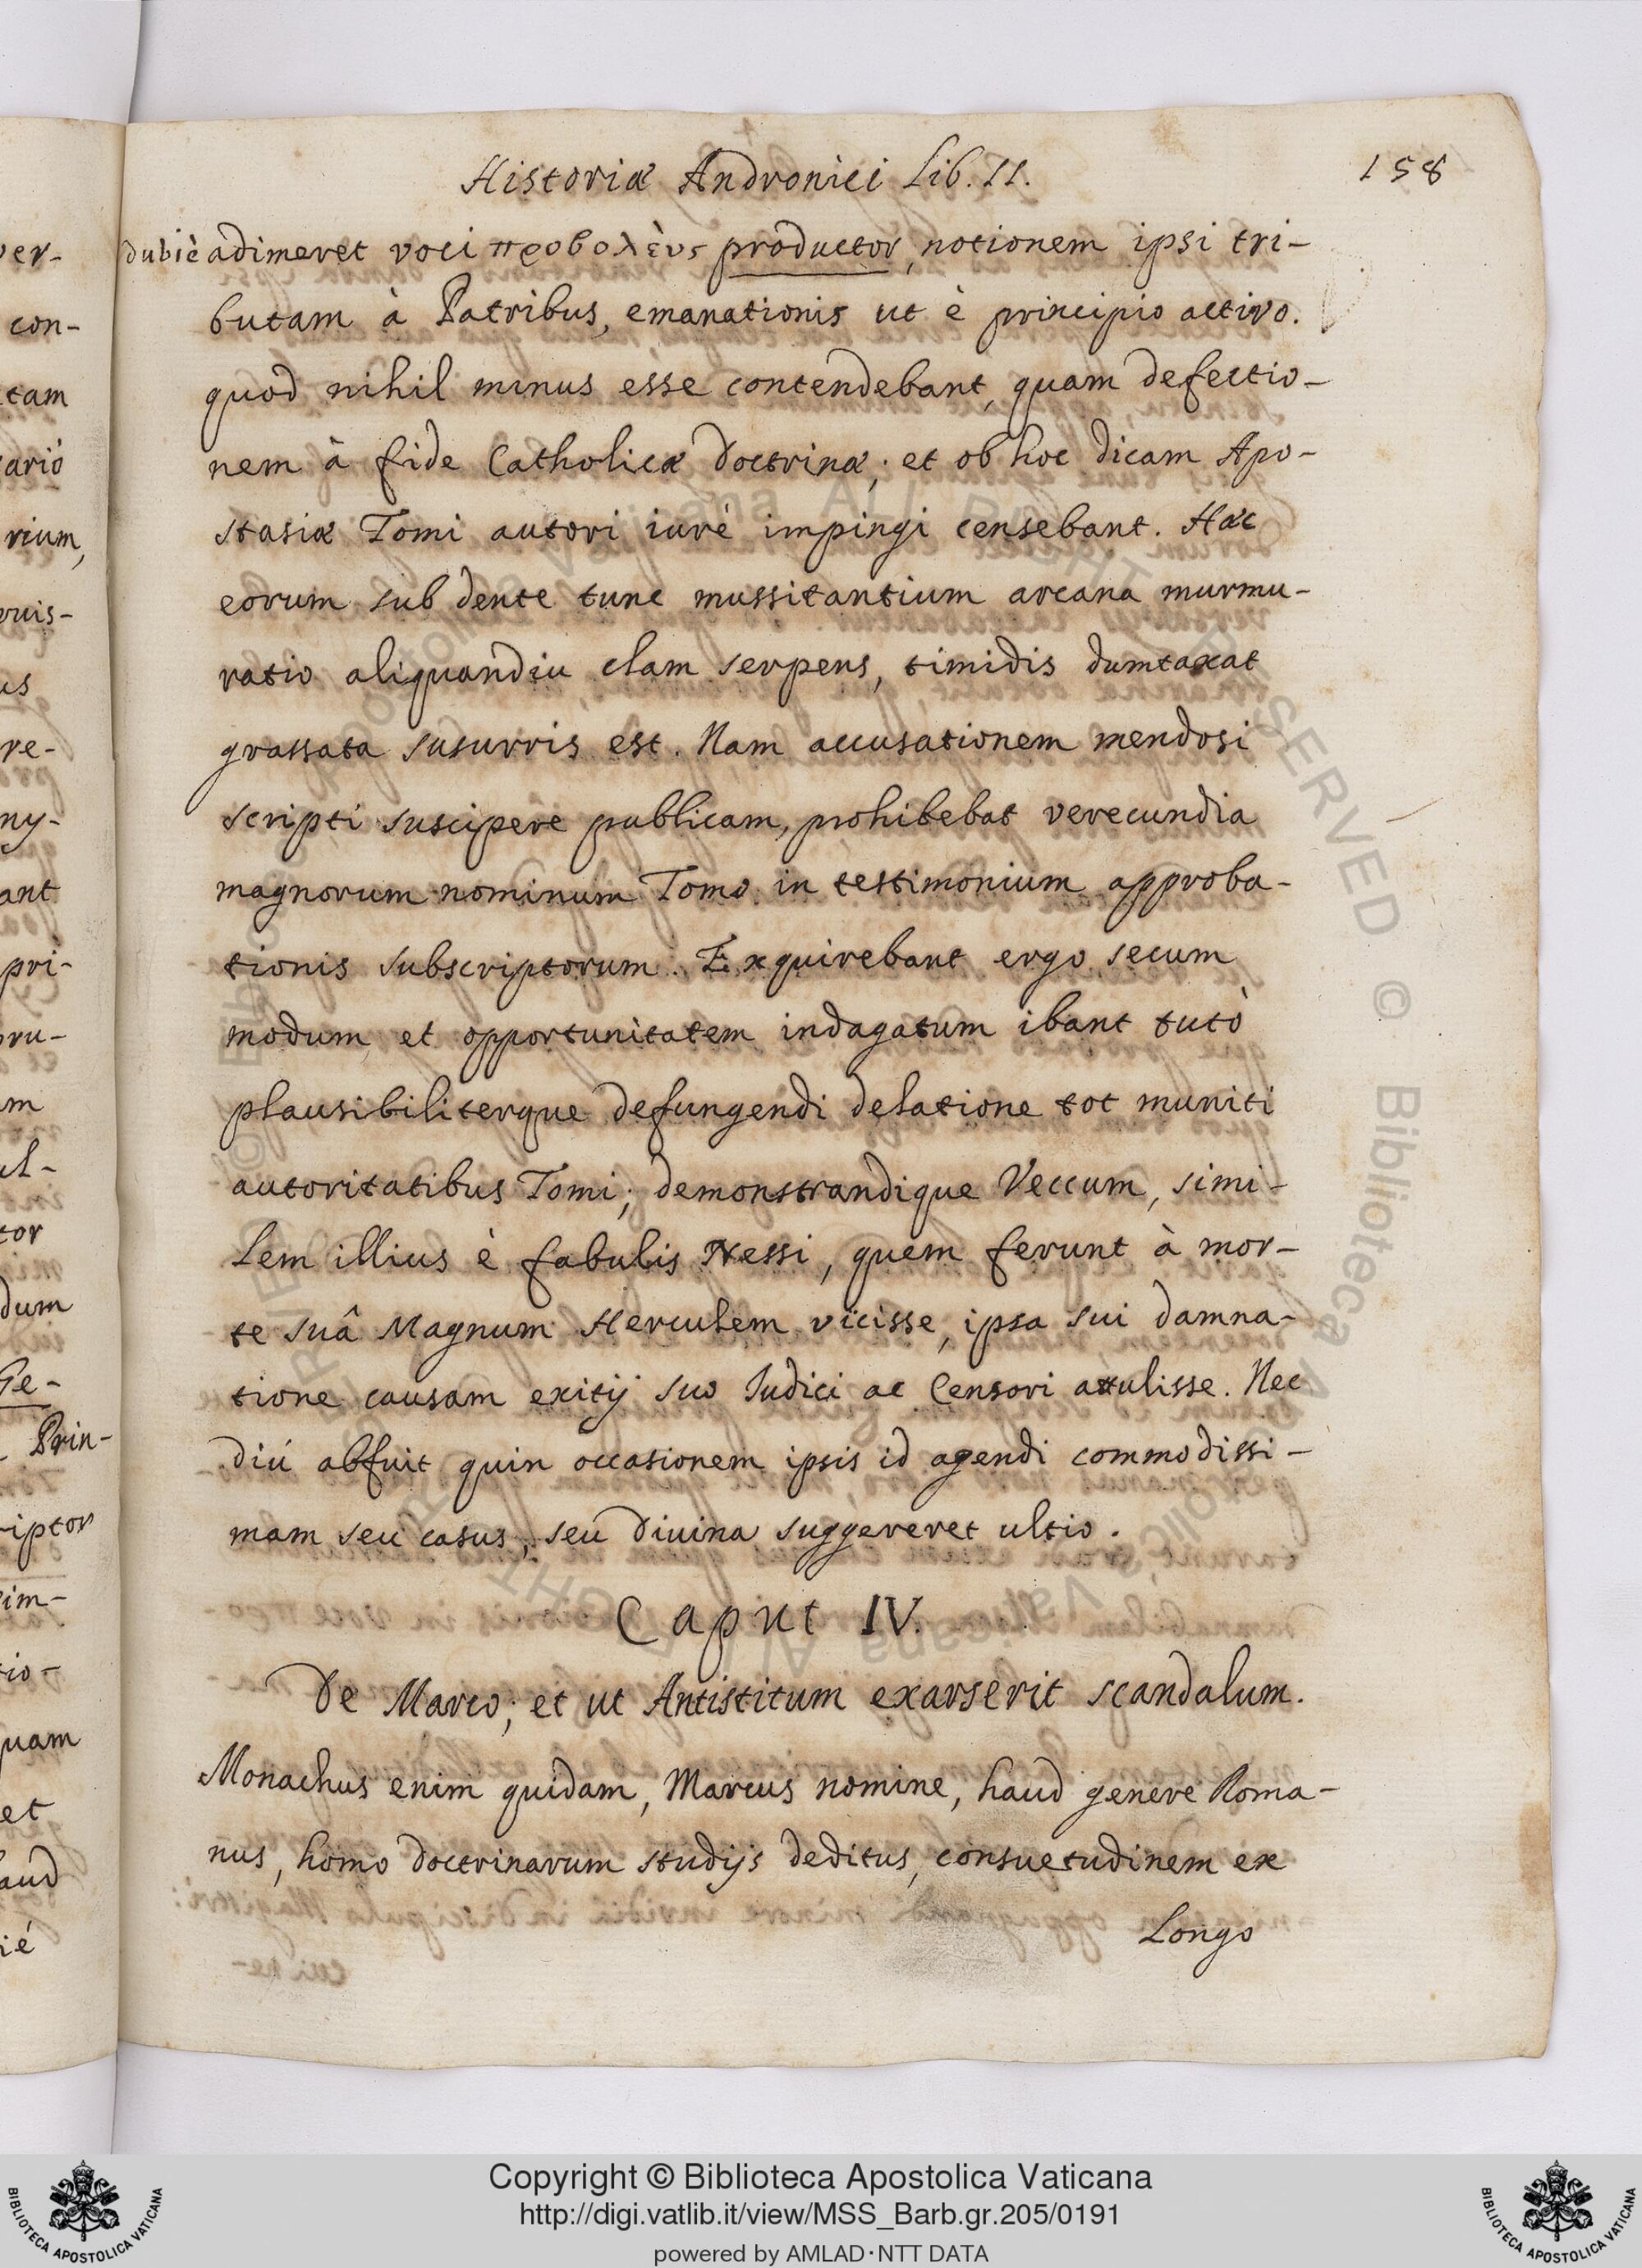 Historiæ Andronici Lib. II.
158
dubiè adimeret voci προβολὲυς productor, notionem ipsi tri-
butam à Patribus, emanationis ut è principio activo.
quod nihil minus esse contendebant, quam defectio-
nem à fide Catholicæ doctrinæ; et ob hoc dicam Apo-
stasiæ Tomi autori iurè impingi censebant. Hæc
eorum sub dente tunc mussitantium arcana murmu-
ratio aliquandiu clam serpens, timidis dumtaxat
grassata susurris est. Nam accusationem mendosi
scripti suscipere publicam, prohibebat verecundia
magnorum nominum Tomo in testimonium approba-
tionis subscriptorum. Exquirebant ergo secum
modum et opportunitatem indagatum ibant tutò
plausibiliterque defungendi delatione tot muniti
autoritatibus Tomi; demonstrandique Veccum, simi-
lem illius è fabulis Nessi, quem ferunt à mor-
te suâ Magnum Herculem vicisse, ipsa sui damna-
tione causam exitij suo Iudici ac Censori attulisse. Nec
diú abfuit quin occasionem ipsis id agendi commodissi-
mam seu casus, seu divina suggereret ultio.
Caput IV.
De Marco; et ut Antistitum exarserit scandalum.
Monachus enim quidam, Marcus nomine, haud genere Roma-
nus, homo doctrinarum studijs deditus, consuetudinem ex
Longo
ver-
con-
tam
ario
rium,
us
re-
ny-
ant
pri-
ru-
m
ul-
tor
dum
Ge-
Prin-
riptor
im-
tio-
quam
et
aud
ié
Copyright © Biblioteca Apostolica Vaticana
http://digi.vatlib.it/view/MSS_Barb.gr.205/0191
powered by AMLAD·NTT DATA
BIBLIOTECA APOSTOLICA VATICANA
BIBLIOTECA APOSTOLICA VATICANA